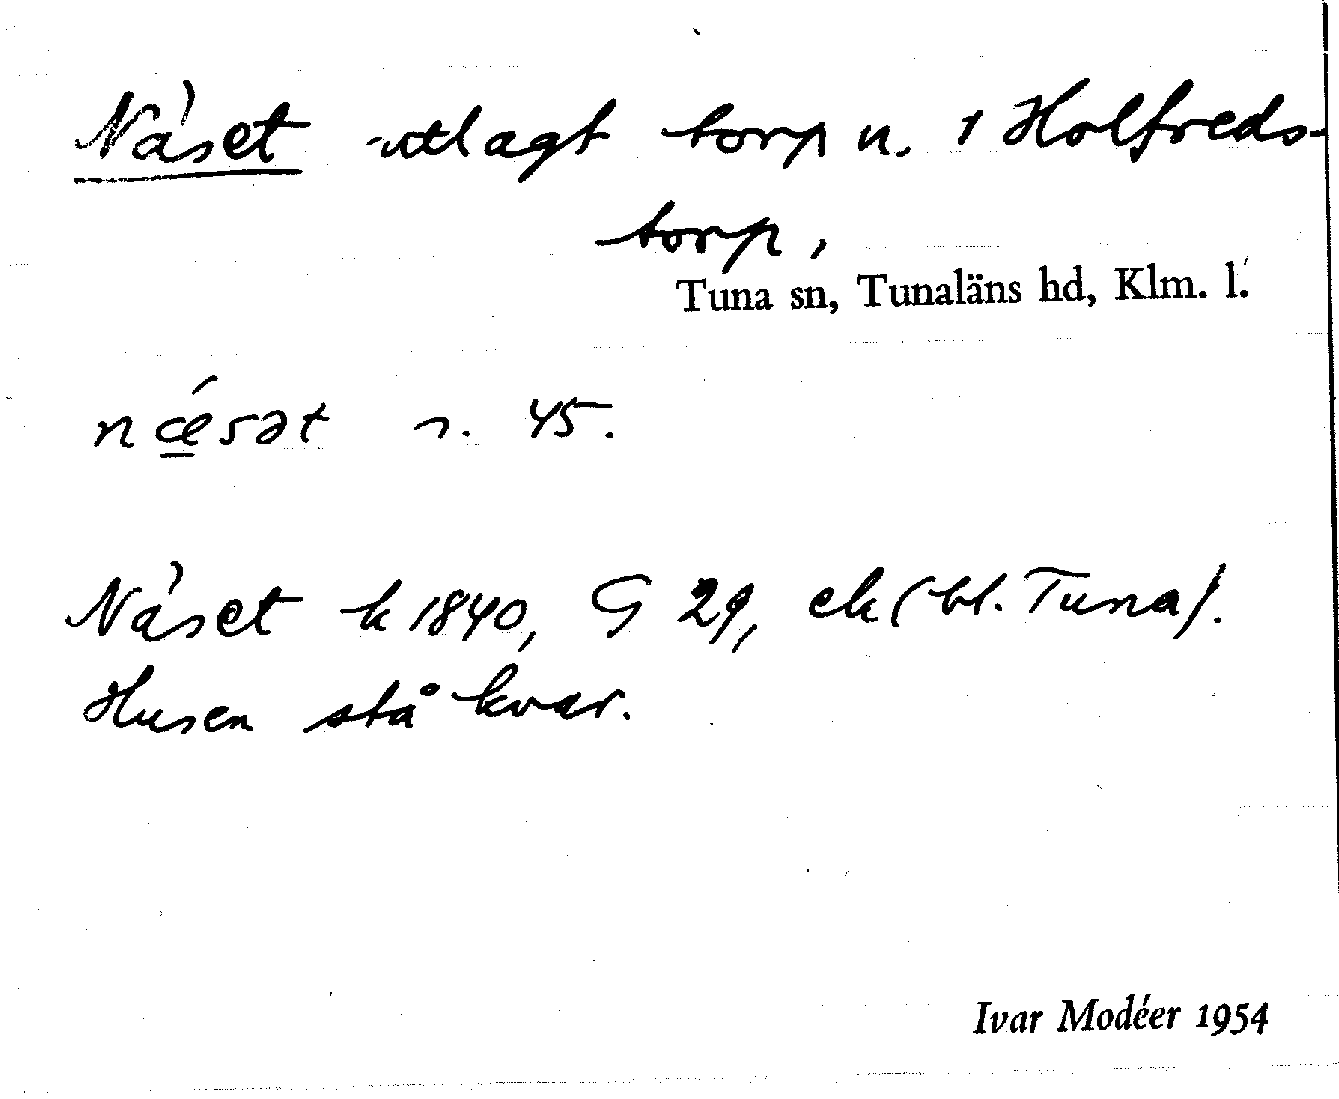 Näset utlagt torp u. 1 Holfreds-
torp,
Tuna sn, Tunaläns hd, Klm. l.
nǽsət n. 45.
Näset k 1840, G 29, ek (bl. Tuna).
Husen stå kvar.
Ivar Modéer 1954